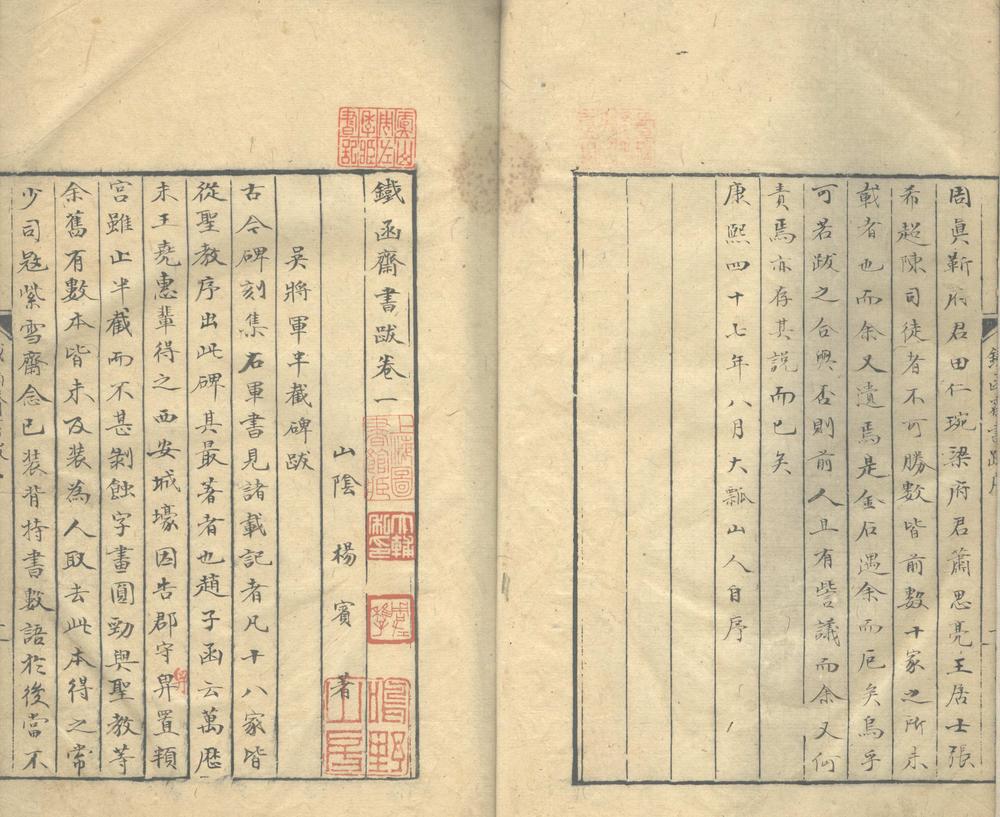 周真靳府君田仁琬梁府君蕭思亮王居士張
希超陳司徒者不可勝數皆前數十家之所未
載者也而余又遺焉是金石遇余而厄矣烏乎
可若跋之合與否則前人且有訾議而余又何
責焉亦存其說而已矣
康熙四十七年八月大瓢山人自序
鐵函齋書跋卷一
山陰楊賓著
吳將軍半截碑跋
古今碑刻集右軍書見諸載記者凡十八家皆
從聖教序出此碑其最著者也趙子函云萬曆
末王堯惠輩得之西安城壕因告郡守舁置頖
宮雖止半截而不甚剝蝕字畫圓勁與聖教等
余舊有數本皆未及装為人取去此本得之常
少司寇紫雪齋念已装背持書數語於後當不
虞山周左季
上海圖書館藏
大輔私印
周左季
鳩野山房
舁